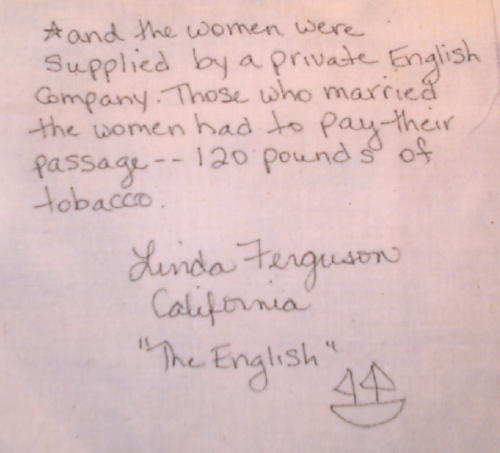 ☆and the women were
supplied by a private English
Company. Those who married
the women had to pay their
passage-- 120 pounds of
tobacco.
Linda Ferguson
California
"The English"